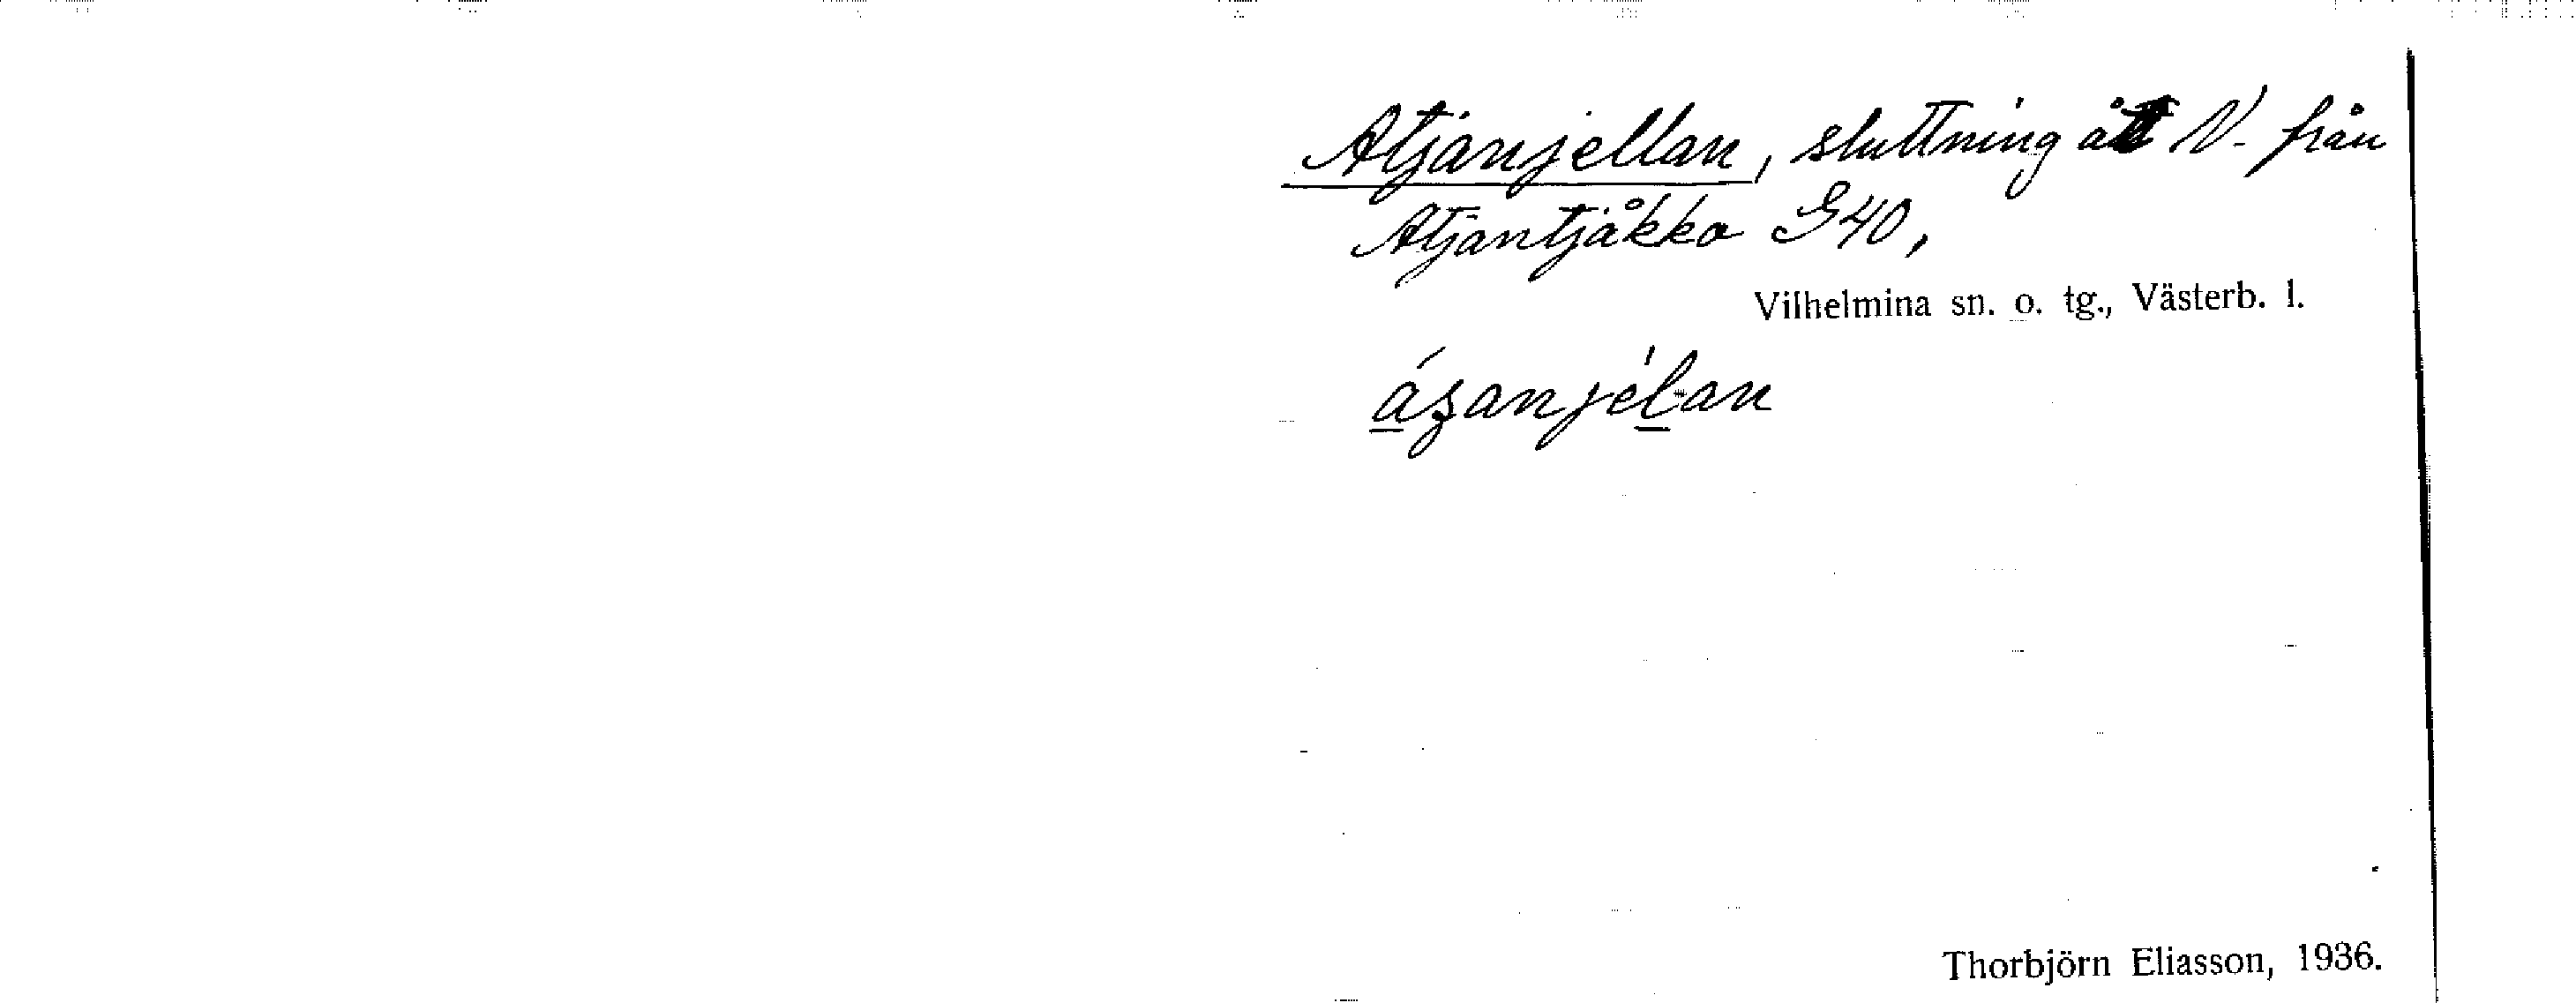 Atjanjellan, sluttning åt N. från
Atjantjåkko G40,
Vilhelmina sn. o. tg., Västerb. l.
áʒanjélan
Thorbjörn Eliasson, 1936.